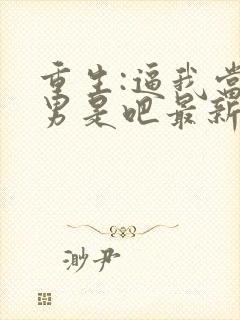 重生:逼我当
男是吧最新
渺尹